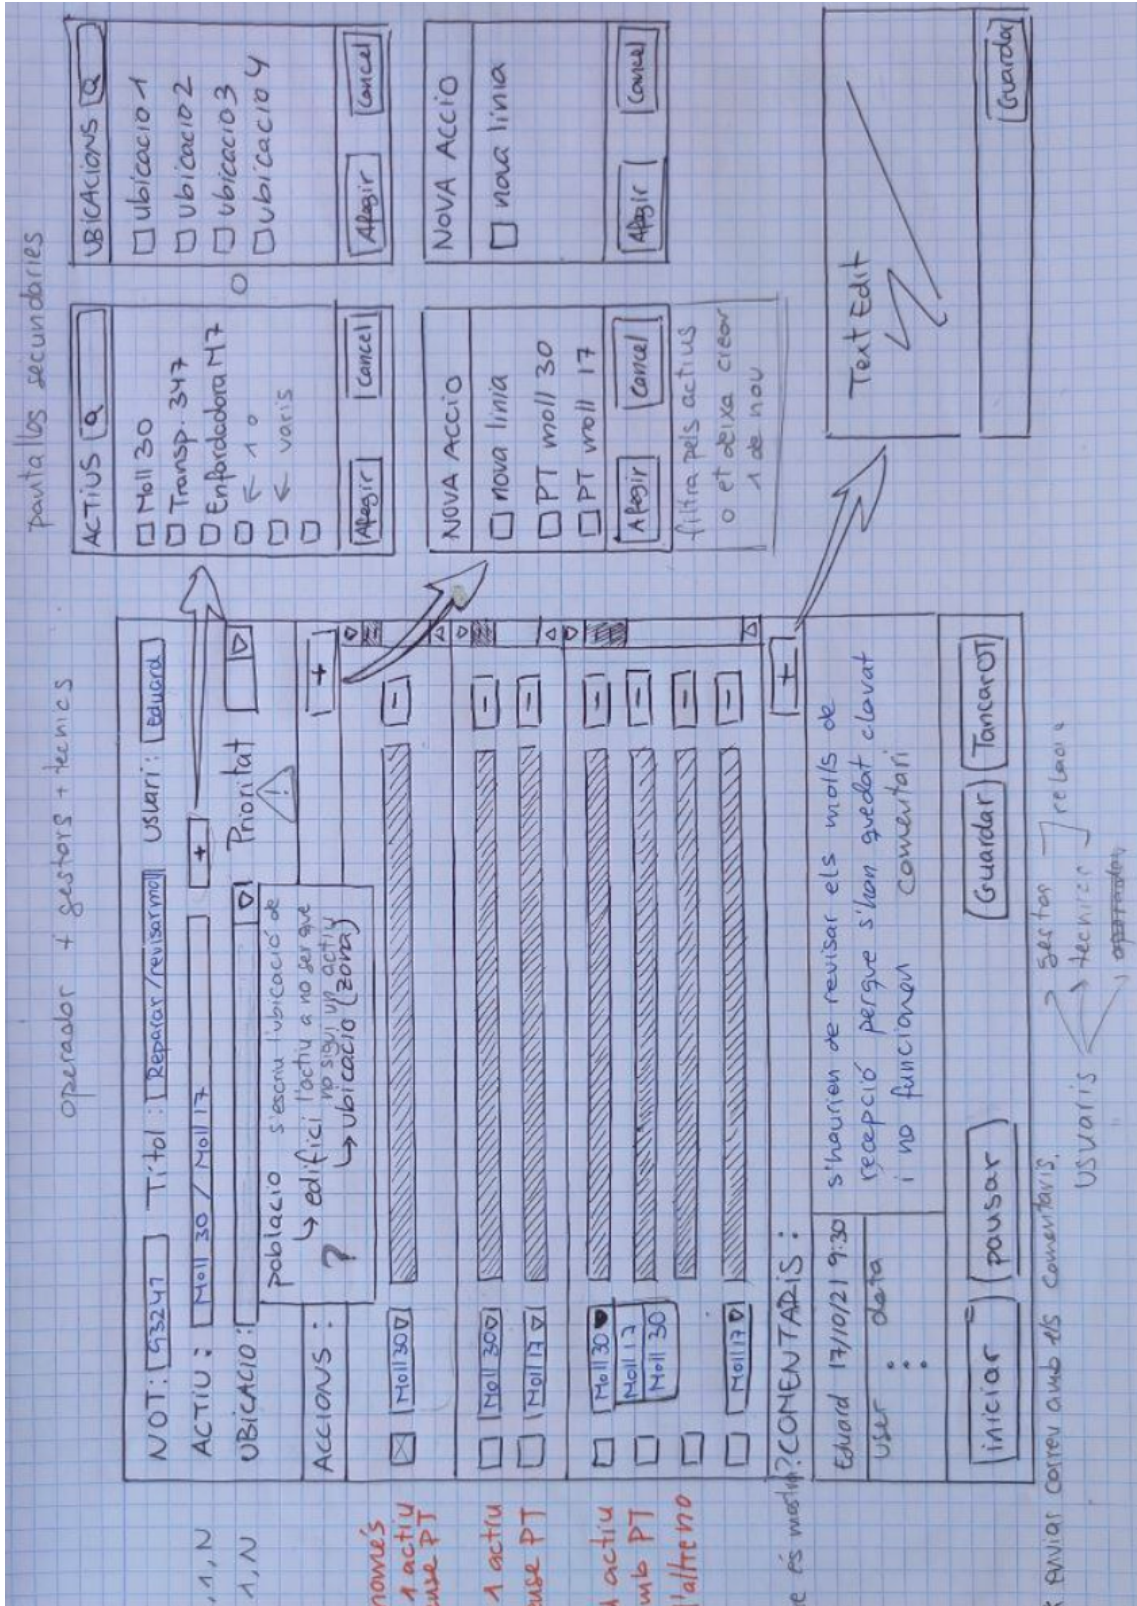 operador + gestors + tecnics
NOT: 93247 Títol: Reparar/revisar moll Usuari: Eduard
ACTIU: Moll 30 / Moll 17 +
UBICACIO: Prioritat
poblacio s'escriu l'ubicació de
↳ edifici l'actiu a no ser que
no sigui un actiu
↳ ubicació (zona)
?
!
ACCIONS: +
Moll 30 -
Moll 30 -
Moll 17 -
Moll 30 -
Moll 17 -
Moll 30 -
Moll 17 -
COMENTARIS: +
Eduard 17/10/21 9:30 s'haurien de revisar els molls de
recepció perque s'han quedat clavat
i no funcionen comentari
user data
iniciar pausar Guardar Tancar OT
enviar correu amb els comentaris.
usuaris gestor
tecnics
, 1, N
1, N
només
1 actiu
PT
1 actiu
PT
actiu
PT
l'altre no
es mostri?
pantalles secundaries
ACTIUS
Moll 30
Transp. 347
Enfardadora M7
← 1 o
← varis
Afegir Cancel
o
UBICACIONS
ubicacio 1
ubicacio 2
ubicacio 3
ubicacio 4
Afegir Cancel
NOVA ACCIO
nova linia
PT moll 30
PT moll 17
Afegir Cancel
filtra pels actius
o et deixa crear
1 de nou
NOVA ACCIO
nova linia
Afegir Cancel
Text Edit
Guardar